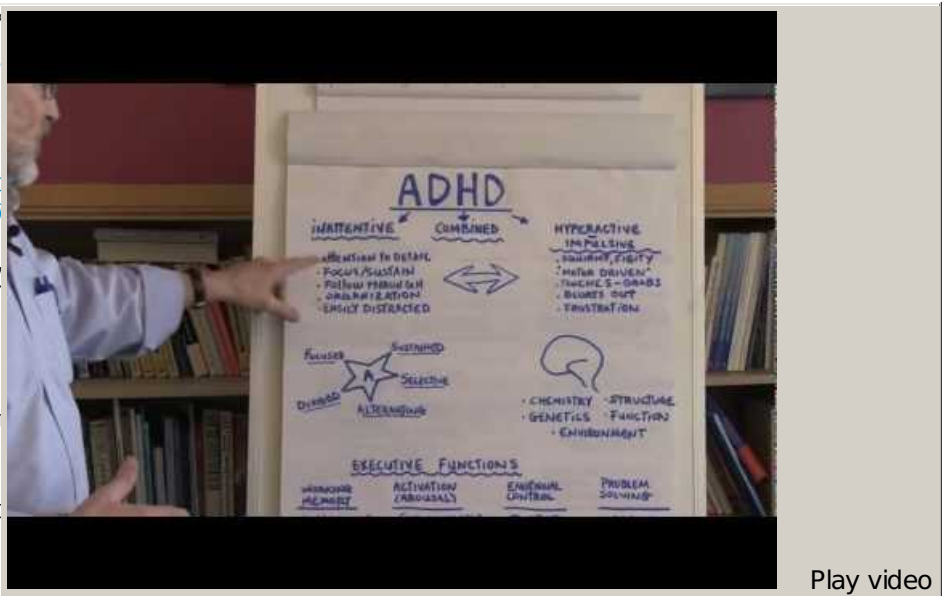 ADHD
INATTENTIVE COMBINED HYPERACTIVE
IMPULSIVE
ATTENTION TO DETAIL
· FOCUS/SUSTAIN
· FOLLOW THROUGH
· ORGANIZATION
· EASILY DISTRACTED
· SQUIRMY, FIGITY
· "MOTOR DRIVEN"
· TOUCHES - GRABS
· BLURTS OUT
· FRUSTRATION
FOCUSED
SUSTAINED
A
SELECTIVE
DIVIDED
ALTERNATING
· CHEMISTRY · STRUCTURE
· GENETICS · FUNCTION
· ENVIRONMENT
EXECUTIVE FUNCTIONS
WORKING
MEMORY
ACTIVATION
(AROUSAL)
EMOTIONAL
CONTROL
PROBLEM
SOLVING
Play video